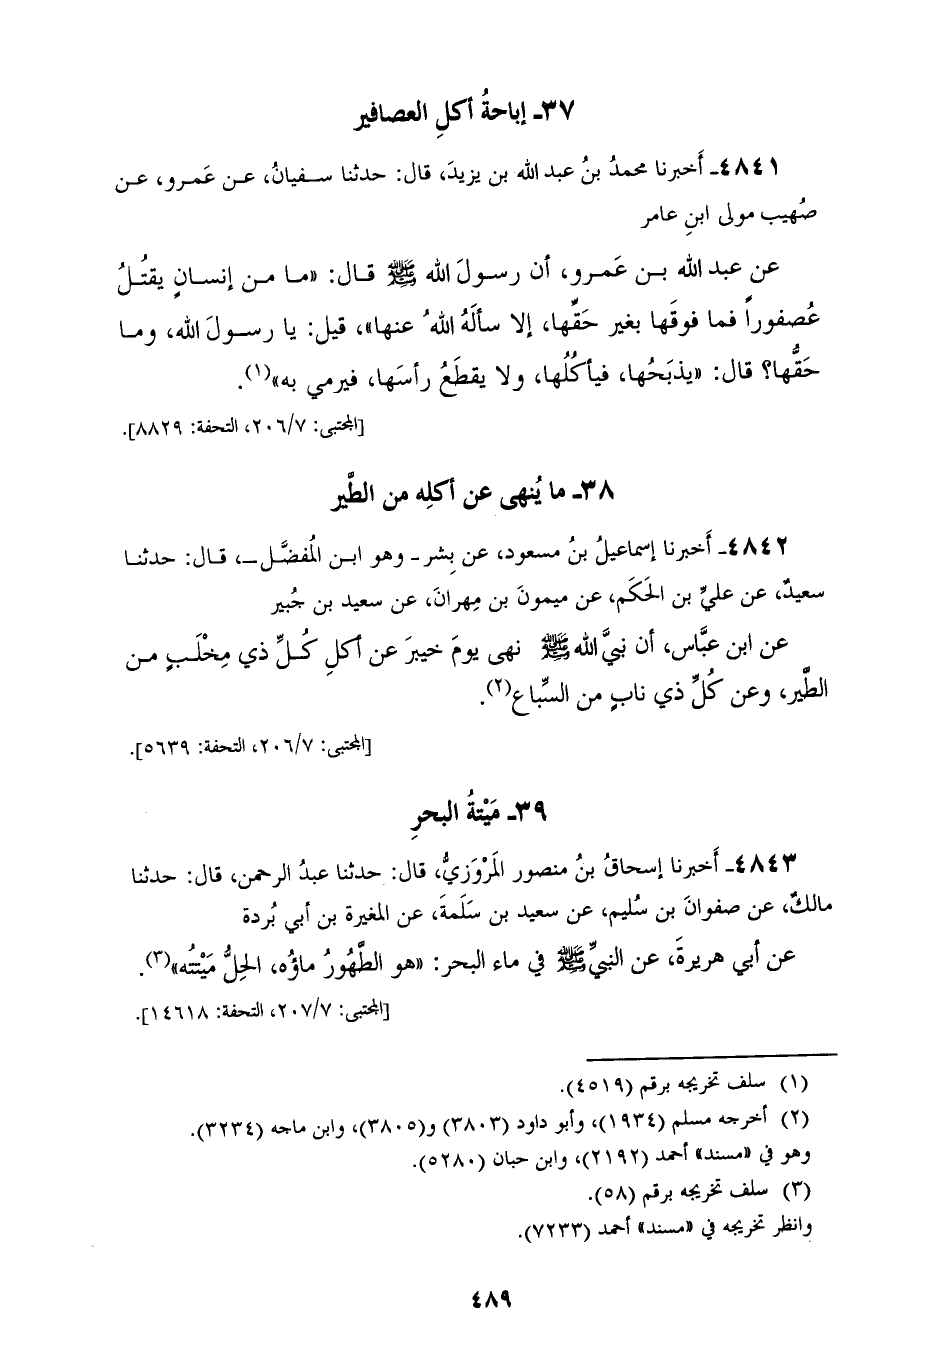 ٣٧ـ إباحةُ أكلِ العصافير
٤٨٤١ـ أَخبرنا محمدُ بنُ عبد الله بن يزيدَ، قال: حدثنا سـفيانُ، عـن عَمـرو، عـن
صُهيب مولى ابنِ عامر
عن عبد الله بـن عَمـرو، أن رسـولَ الله ﷺ قـال: «مـا مـن إنسـانٍ يقتُـلُ
عُصفوراً فما فوقَها بغير حَقِّها، إلا سألَهُ اللهُ عنها»، قيل: يا رسـولَ الله، ومـا
حَقُّها؟ قال: «يذبَحُها، فيأكُلُها، ولا يقطَعُ رأسَها، فيرمي به»(١).
[المجتبى: ٢٠٦/٧، التحفة: ٨٨٢٩].
٣٨ـ ما يُنهى عن أكلِه من الطَّير
٤٨٤٢ـ أَخبرنا إسماعيلُ بنُ مسعود، عن بِشر ـ وهو ابـن المُفضَّـل ـ، قـال: حدثنـا
سعيدٌ، عن عليِّ بن الحَكَم، عن ميمونَ بن مِهرانَ، عن سعيد بن جُبير
عن ابن عبَّاس، أن نبيَّ الله ﷺ نهى يومَ خيبرَ عن أكلِ كُـلِّ ذي مِخْلَـبٍ مـن
الطَّير، وعن كُلِّ ذي نابٍ من السِّباع(٢).
[المجتبى: ٢٠٦/٧، التحفة: ٥٦٣٩].
٣٩ـ مَيْتةُ البحرِ
٤٨٤٣ـ أَخبرنا إسحاقُ بنُ منصور المَرْوَزيُّ، قال: حدثنا عبدُ الرحمن، قال: حدثنا
مالكٌ، عن صفوانَ بن سُليم، عن سعيد بن سَلَمةَ، عن المغيرة بن أبي بُردة
عن أبي هريرةَ، عن النبيِّ ﷺ في ماء البحر: «هو الطَّهُورُ ماؤُه، الحِلُّ مَيْتتُه»(٣).
[المجتبى: ٢٠٧/٧، التحفة: ١٤٦١٨].
(١) سلف تخريجه برقم (٤٥١٩).
(٢) أخرجه مسلم (١٩٣٤)، وأبو داود (٣٨٠٣) و(٣٨٠٥)، وابن ماجه (٣٢٣٤).
وهو في «مسند» أحمد (٢١٩٢)، وابن حبان (٥٢٨٠).
(٣) سلف تخريجه برقم (٥٨).
وانظر تخريجه في «مسند» أحمد (٧٢٣٣).
٤٨٩